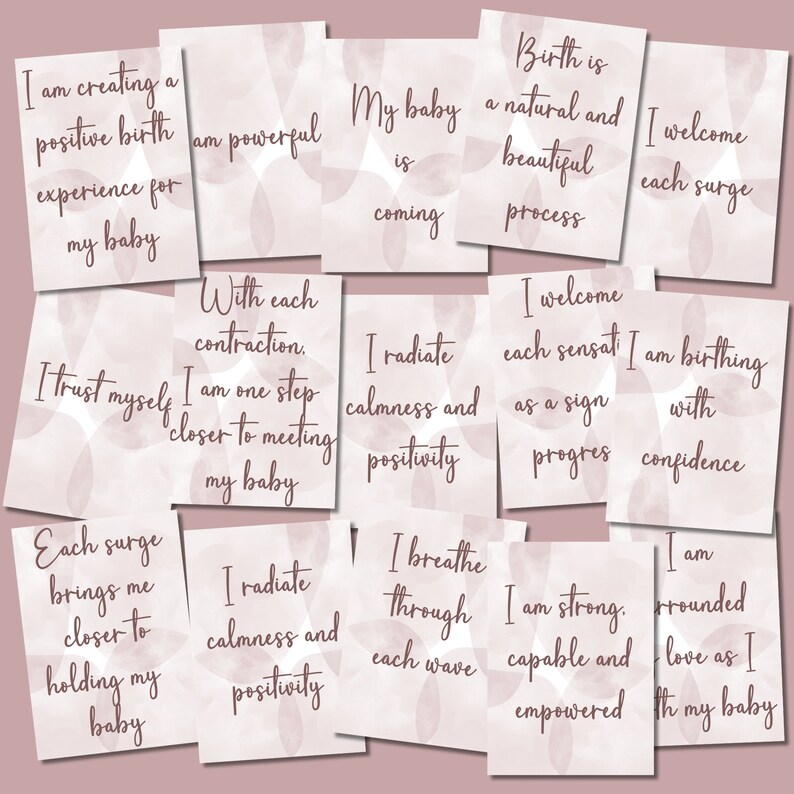 I am creating a
positive birth
experience for
my baby
am powerful
My baby
is
coming
Birth is
a natural and
beautiful
process
I welcome
each surge
I trust myself
With each
contraction,
I am one step
closer to meeting
my baby
I radiate
calmness and
positivity
I welcome
each sensati
as a sign
progres
I am birthing
with
confidence
Each surge
brings me
closer to
holding my
baby
I radiate
calmness and
positivity
I breathe
through
each wave
I am strong,
capable and
empowered
I am
rrounded
love as I
th my baby